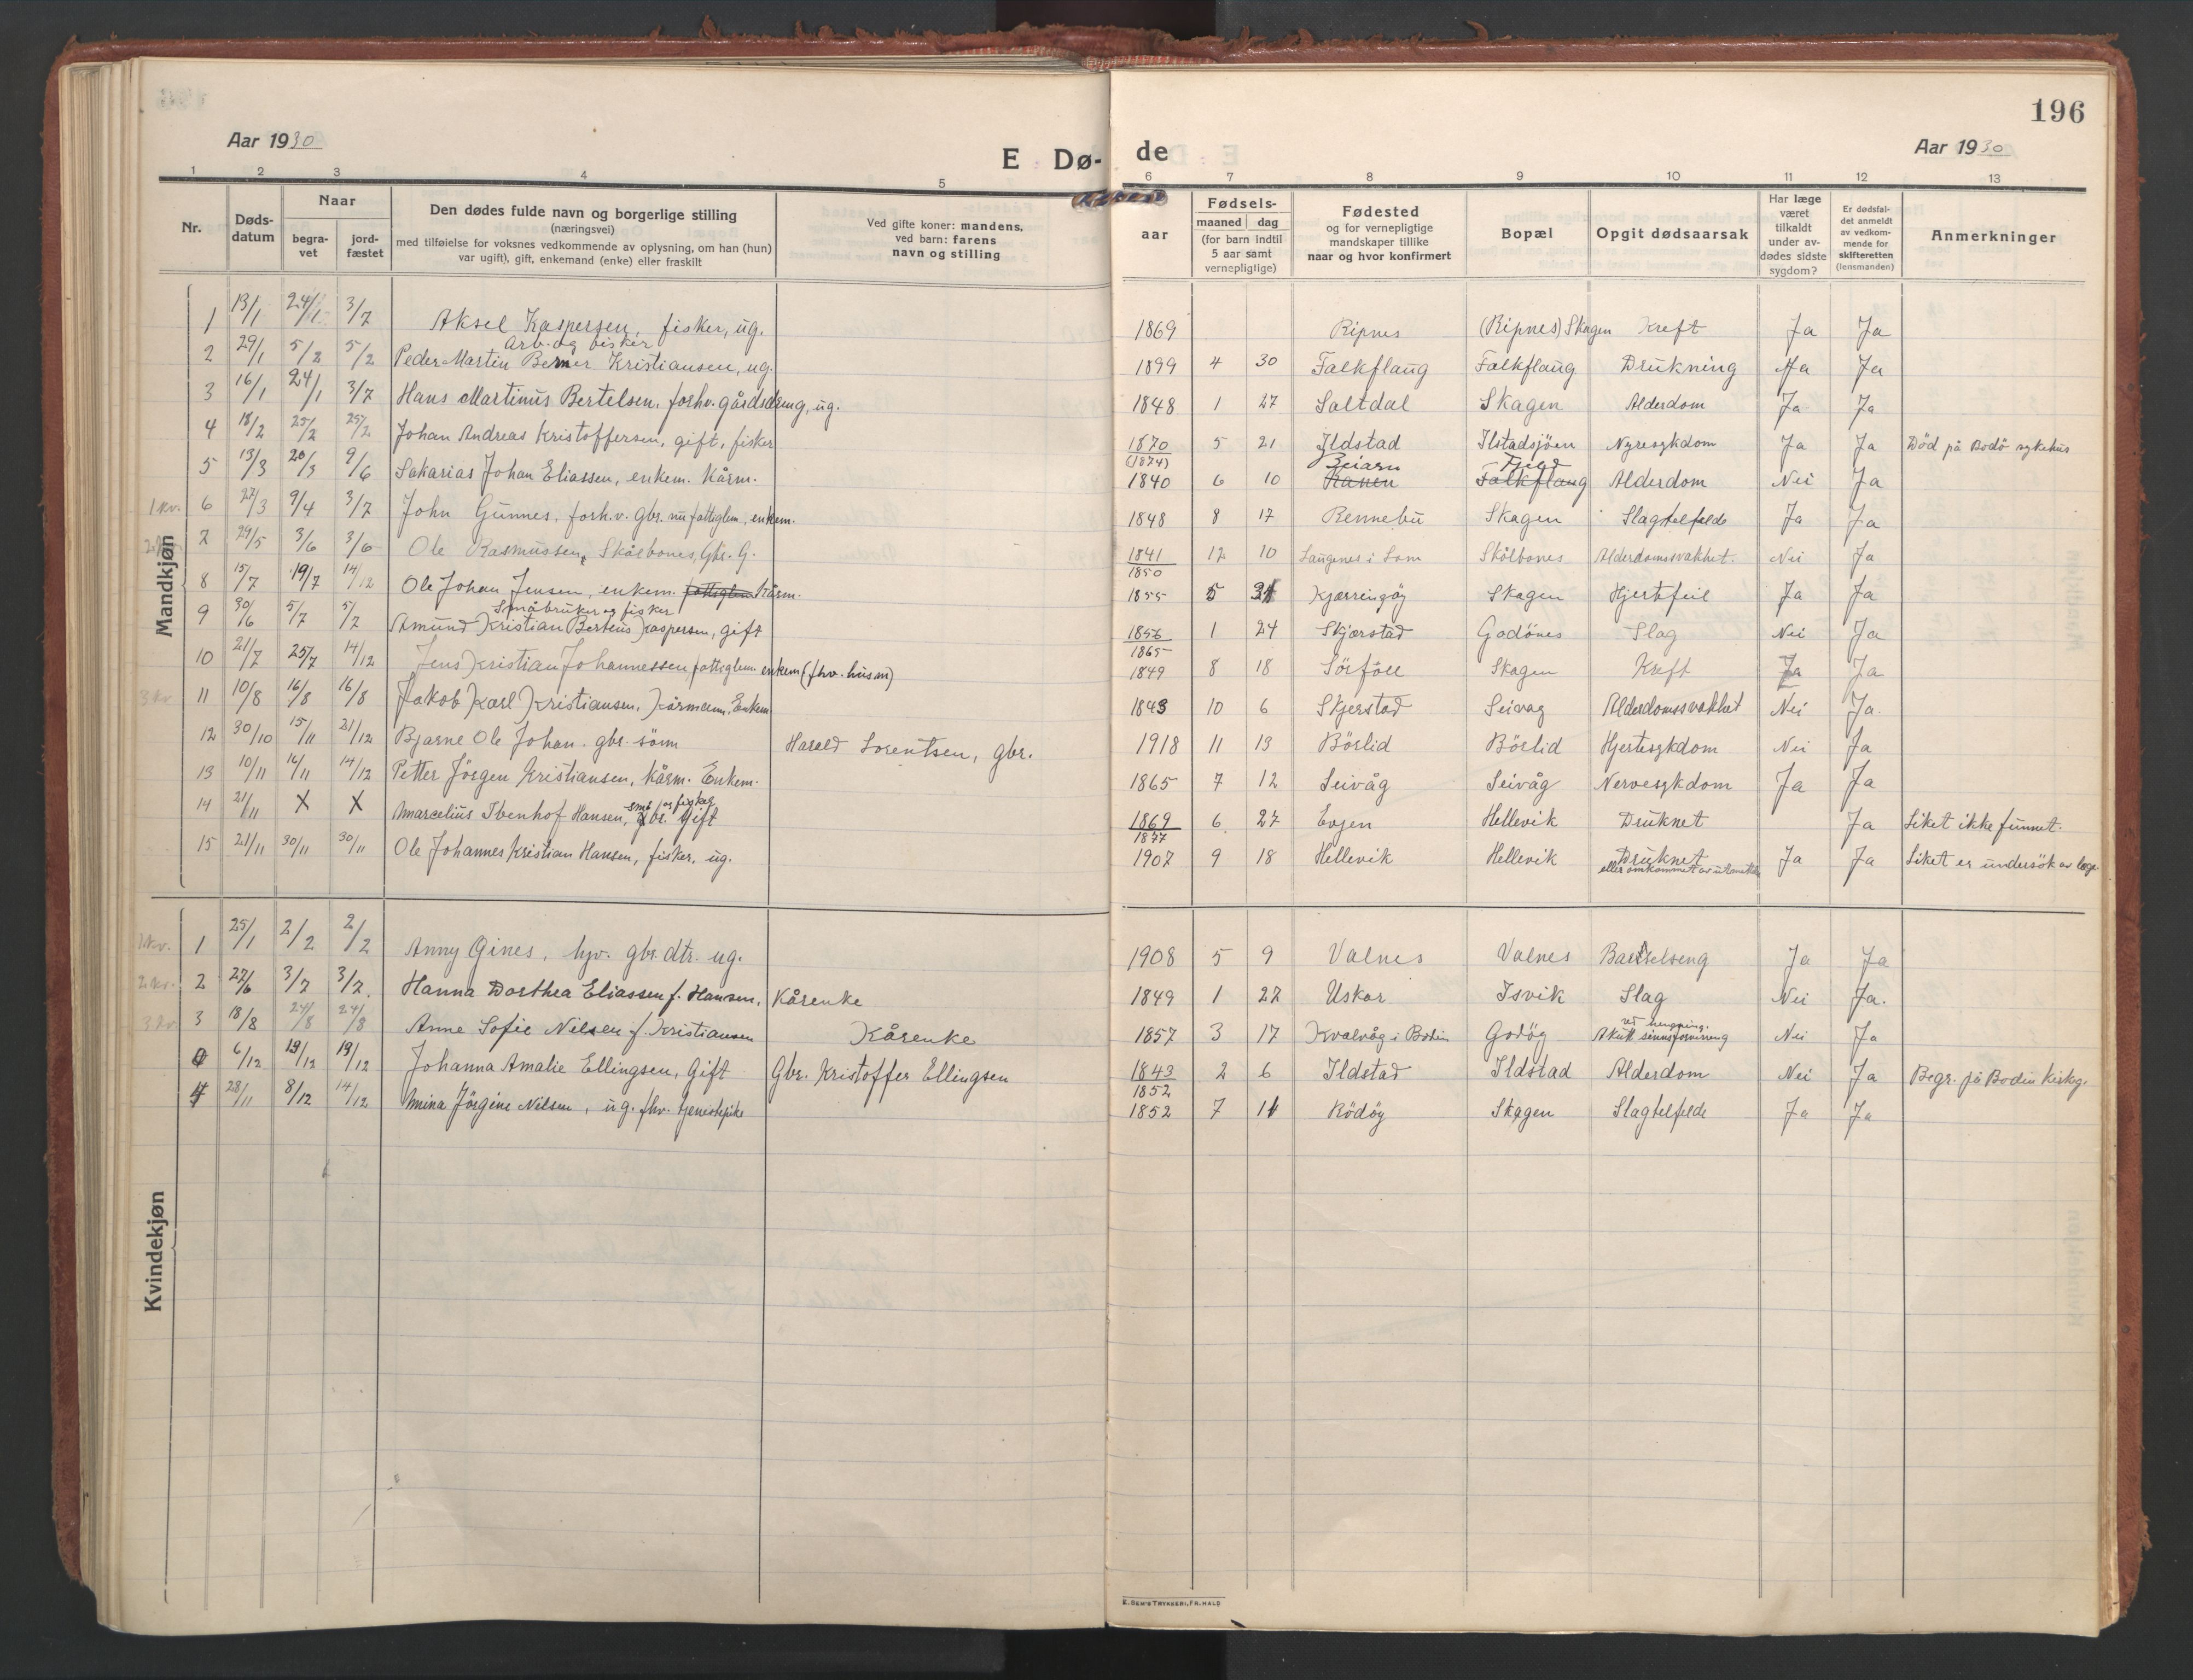 196
Aar 1930
E Dø-
de
Aar 1930
1 2 3 4 5 6 7 8 9 10 11 12 13
Nr.
Døds-
datum
Naar
begra-
vet
jord-
fæstet
Den dødes fulde navn og borgerlige stilling
(næringsvei)
med tilføielse for voksnes vedkommende av oplysning, om han (hun)
var ugift), gift, enkemand (enke) eller fraskilt
Ved gifte koner: mandens,
ved barn: farens
navn og stilling
aar
Fødsels-
maaned dag
(for barn indtil
5 aar samt
vernepligtige)
Fødested
og for vernepligtige
mandskaper tillike
naar og hvor konfirmert
Bopæl
Opgit dødsaarsak
Har læge
været
tilkaldt
under av-
dødes sidste
sygdom?
Er dødsfal-
det anmeldt
av vedkom-
mende for
skifteretten
(lensmanden)
Anmerkninger
Mandkjøn
1 13/1 24/1 3/7 Aksel Kaspersen, fisker, ug. 1869 Ripnes (Ripnes) Skagen Kreft Ja Ja
Arb. og fisker
2 29/1 5/2 5/2 Peder Martin Berner Kristiansen, ug. 1899 4 30 Falkflaug Falkflaug Drukning Ja Ja
3 16/1 24/1 3/7 Hans Martinus Bertelsen, forhv. gårdsdreng, ug. 1848 1 27 Saltdal Skagen Alderdom Ja Ja
4 18/2 25/2 25/2 Johan Andreas Kristoffersen, gift, fisker 1870 (1874) 5 21 Ildstad Ilstadsjöen Nyresykdom Ja Ja Död på Bodö sykehus
5 13/3 20/3 9/6 Sakarias Johan Eliassen, enkem. Kårm. 1840 6 10 Beiarn Ranen Falkflaug Alderdom Nei Ja
1 kv. 6 27/3 9/4 3/7 John Gunnes, forh.v. gbr. nu fattiglem, enkem. 1848 8 17 Rennebu Skagen Slagtelfelde Ja Ja
7 29/5 3/6 3/6 Ole Rasmussen, Skålbones, Gbr. G. 1841 1850 12 10 Laugenes i Lom Skålbones Alderdomssvakhet. Nei Ja
8 15/7 19/7 14/12 Ole Johan Jensen, enkem. fattiglem Kårm. 1855 5 31 Kjærringöy Skagen Hjertefeil Ja Ja
Småbruker og fisker
9 30/6 5/7 5/7 Amund Kristian Berteus Kaspersen, gift 1856 1865 1 24 Skjærstad Godönes Slag Nei Ja
10 21/7 25/7 14/12 Jens Kristian Johannessen fattiglem enkem (fhv. husm) 1849 8 18 Sörfoll Skagen Kreft Ja Ja
3 kv 11 10/8 16/8 16/8 Jakob Karl Kristiansen, Kårmann, Enkem 1843 10 6 Skjerstad Seivag Alderdomssvakhet Nei Ja.
12 30/10 15/11 21/12 Bjarne Ole Johan. gbr. sönn Harald Lorentsen, gbr. 1918 11 13 Börlid Börlid Hjertesykdom Nei Ja
13 10/11 16/11 14/12 Petter Jörgen Kristiansen, Kårm. Enkem. 1865 7 12 Seivåg Seivåg Nervesykdom Ja Ja
små og fisker
14 21/11 X X Marcelius Ibenhof Hansen, gbr. Gift 1869 1877 6 27 Evjen Hellevik Druknet Ja Liket ikke funnet.
15 21/11 30/11 30/11 Ole Johannes Kristian Hansen, fisker, ug. 1907 9 18 Hellevik Hellevik Druknet Ja Ja Liket er undersök av læge
eller omkommet av
Kvindekjøn
1 kv. 1 25/1 2/2 2/2 Anny Gines, hjv. gbr. dtr. ug. 1908 5 9 Valnes Valnes Barselseng Ja Ja
2 kv. 2 27/6 3/7 3/7. Hanna Dorthea Eliassen f. Hansen, Kårenke 1849 1 27 Uskar Isvik Slag Nei Ja.
ved hengning.
3 kv. 3 18/8 24/8 24/8 Anne Sofie Nilsen f. Kristiansen Kårenke 1857 3 17 Kvalvåg i Bodin Godöy Akutt sinnsforvirring Nei Ja
6/12 19/12 19/12 Johanna Amalie Ellingsen, Gift Gbr. Kristoffer Ellingsen 1843 1852 2 6 Ildstad Ildstad Alderdom Nei Ja Begr. på Bodin Kirkeg.
4 28/11 8/12 14/12 Anina Jörgine Nilsen, ug. fhv. tjenestepike 1852 7 11 Rödöy Skagen Slagtelfelde Ja Ja
E. SEM'S TRYKKERI, FR.HALD